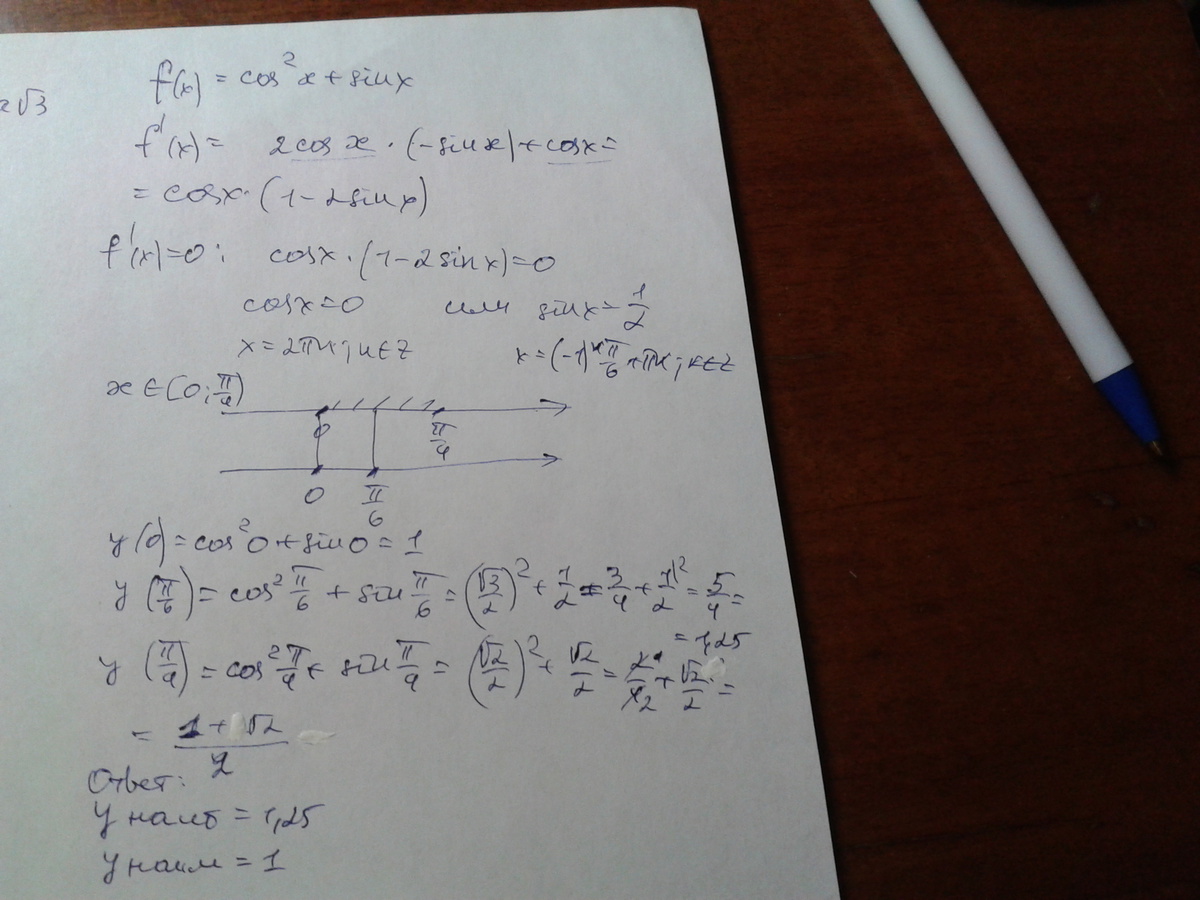 2√3
f(x) = cos²x + sinx
f'(x) = 2cosx · (-sinx) + cosx =
= cosx · (1 - 2sinx)
f'(x)=0: cosx · (1 - 2sinx) = 0
cosx=0 или sinx = 1/2
x = 2πк; к∈Z x = (-1)^к π/6 + πк; к∈Z
x ∈ [0; π/4)
0 π/4
0 π/6
y(0) = cos²0 + sin0 = 1
y(π/6) = cos² π/6 + sin π/6 = (√3/2)² + 1/2 = 3/4 + 1/2 |2 = 5/4 =
= 1,25
y(π/4) = cos² π/4 + sin π/4 = (√2/2)² + √2/2 = 2 1/4 2 + √2/2 =
= (1 + √2)/2
Ответ:
y наиб = 1,25
y наим = 1